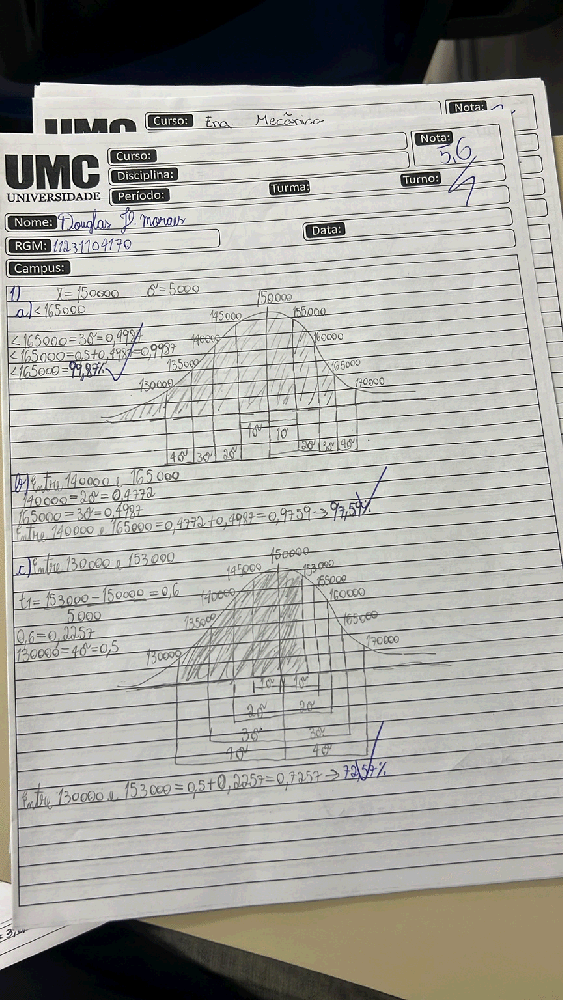 Curso: Eng Mecânica
Nota:
UMC
UNIVERSIDADE
Curso:
Nota: 5,6
Disciplina:
Período:
Turma:
Turno:
Nome: Douglas
RGM: 11231104170
Data:
Campus:
1) x̄ = 150000 σ = 5000
a) < 165000
< 165000 = 3σ = 0,4987
< 165000 = 0,5 + 0,4987 = 0,9987
< 165000 = 99,87%
150000
145000
155000
140000
160000
135000
165000
130000
170000
1σ 1σ
4σ 3σ 2σ 2σ 3σ 4σ
b) Entre 140000 e 165000
140000 = 2σ = 0,4772
165000 = 3σ = 0,4987
Entre 140000 e 165000 = 0,4772 + 0,4987 = 0,9759 → 97,59%
c) Entre 130000 e 153000
t1 = 153000 - 150000 = 0,6
5000
0,6 = 0,2257
130000 = 4σ = 0,5
150000
145000
153000
155000
140000
160000
135000
165000
130000
170000
1σ 1σ
2σ 2σ
3σ 3σ
4σ 4σ
Entre 130000 e 153000 = 0,5 + 0,2257 = 0,7257 → 72,57%